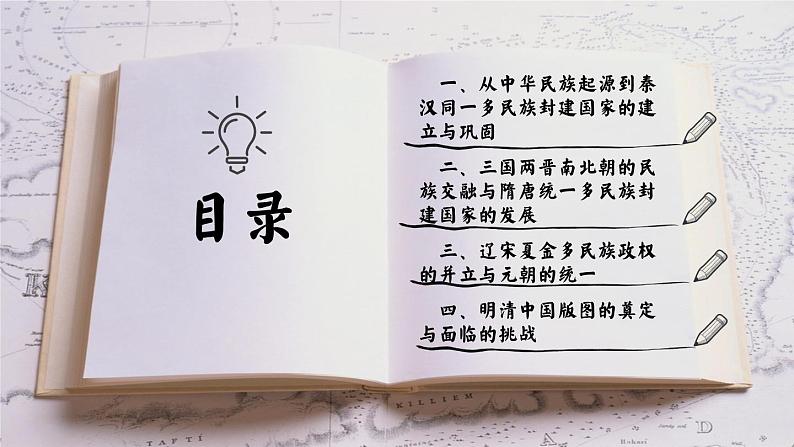 目录
一、从中华民族起源到秦
汉同一多民族封建国家的建
立与巩固
二、三国两晋南北朝的民
族交融与隋唐统一多民族封
建国家的发展
三、辽宋夏金多民族政权
的并立与元朝的统一
四、明清中国版图的奠定
与面临的挑战
KILLIEM
TAFTI
D